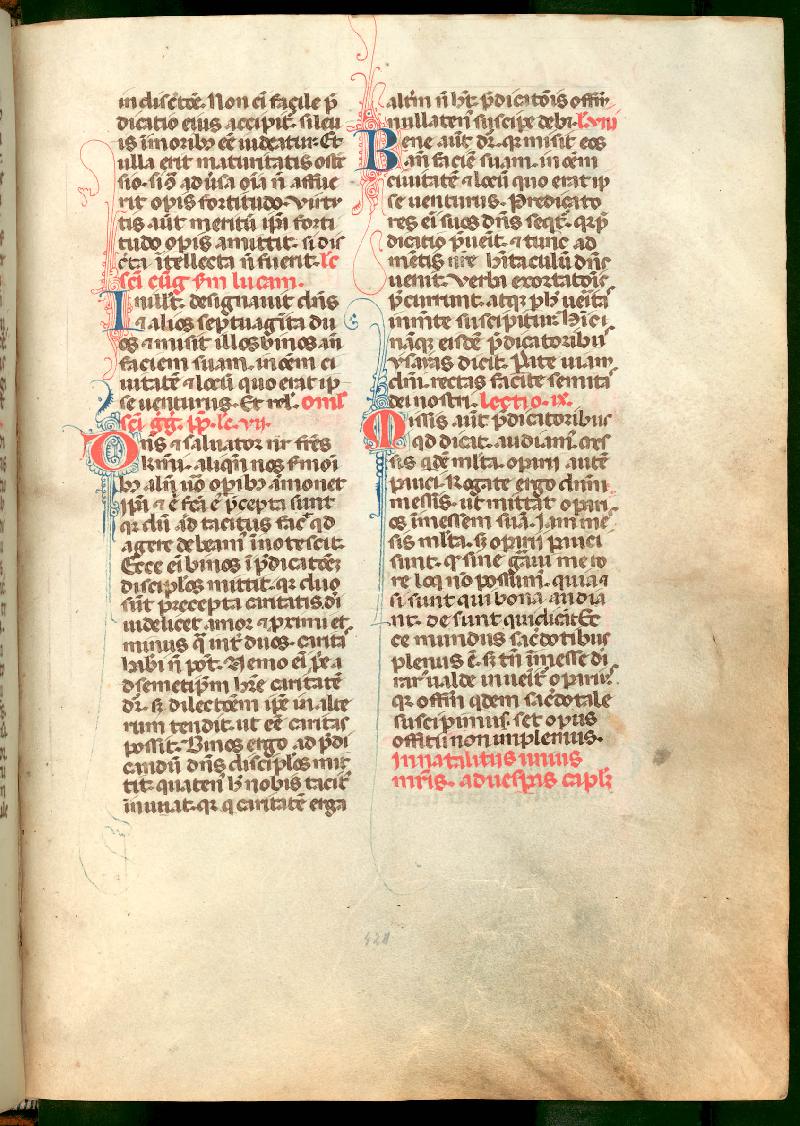 indiscrete. Non ei facile p̄
dicatio eius accipit̄. si leu
is ī moribꝰ eē uideatur. Et
ulla erit maturitatis oste
sio. si
rit opis fortitudo. Virtu
tis aūt meritū ip̄i forti
tudo opis amittit. si dis
c̄ta ītellecta n̄ fuerit. le
sc̄i eūg. s̄m lucam.
In illt̄. designauit dn̄s
⁊ alios septuagīta du
os ⁊ misit illos binos an̄
faciem suam. in oēm ci
uitatē ⁊ locū quo erat ip
se uenturus. Et rel̄. Omł
sc̄i g̅g̅. pp̅. le. vii.
Dn̄s ⁊ saluator nr̄ fr̄es
k̄mi. aliqn̄ nos s̄moi
bꝰ alīq̄n uō opibꝰ āmonet
ip̄i ⁊ c̄ fc̄a c̄ p̄cepta sunt
qr dū ad tacitus fac̄ qd
agere debeam̄ īnotescit.
Ecce ei binos ī p̄dicatōez
discip̄los mittit. qr duo
sūt precepta caritatis. di
uidelicet amor ⁊ p̄ximi et.
minus q̄ int̄ duos. carita
h̄ibi n̄ pot̄. Nemo ei p̄e a
d semetip̄m h̄re caritatē
dr̄. s; dilectōem ip̄e in alte
rum tendit. ut eē caritas
possit. Binos ergo ad p̄di
candū dn̄s discip̄los mit
tit. quaten̄ h̄ nobis tacit̄
īnuat. qr q caritatē erga
altm̄ n̄ h̄t p̄dicatōis offim̄
nullaten̄ suscipe debz. l. viii
Bene aūt dr̄. qr misit eos
an̄ faciē suam. in oēm
ciuitatē ⁊ locū quo erat ip
se uenturus. Predicato
res ei suos dn̄s seqt̄. qr p̄
dicatio p̄ueīt. ⁊ tunc ad
mētis nr̄e h̄itaculū dn̄s
uenit. verba exortatōis
p̄currunt. atqz p̄ h̄ ueita
in mēte suscipitur. Hīc ei
nāqz eisdē p̄dicatoribꝰ
ysayas dicit. Pate uiam
dn̄i. rectas facite semita
dei nostri. lectio. ix.
Missis aūt p̄dicatoribus
qd dicat. audiam̄. Mes
sis qdē mlta. opīrij autē
pauci. Rogate ergo dn̄m
messis. ut mittat opari
os ī messem suā. Iam me
sis mlta. s; opīrij pauci
sunt. qr sine g̅ui me ro
re loq nō possum̄. quia ⁊
si sunt qui bona audia
nt. de sunt qui dicāt. Ec
ce mundus sac̄dotibus
plenus ē. s; tn̄ ī messe di
rar ualde inueīt̄ opīriꝰ.
qr offim̄ qdem sac̄dotale
suscipimus. set opus
officij non implemus.
In natalitiis unius
mr̄is. ad uesp̄as capl̄z
421